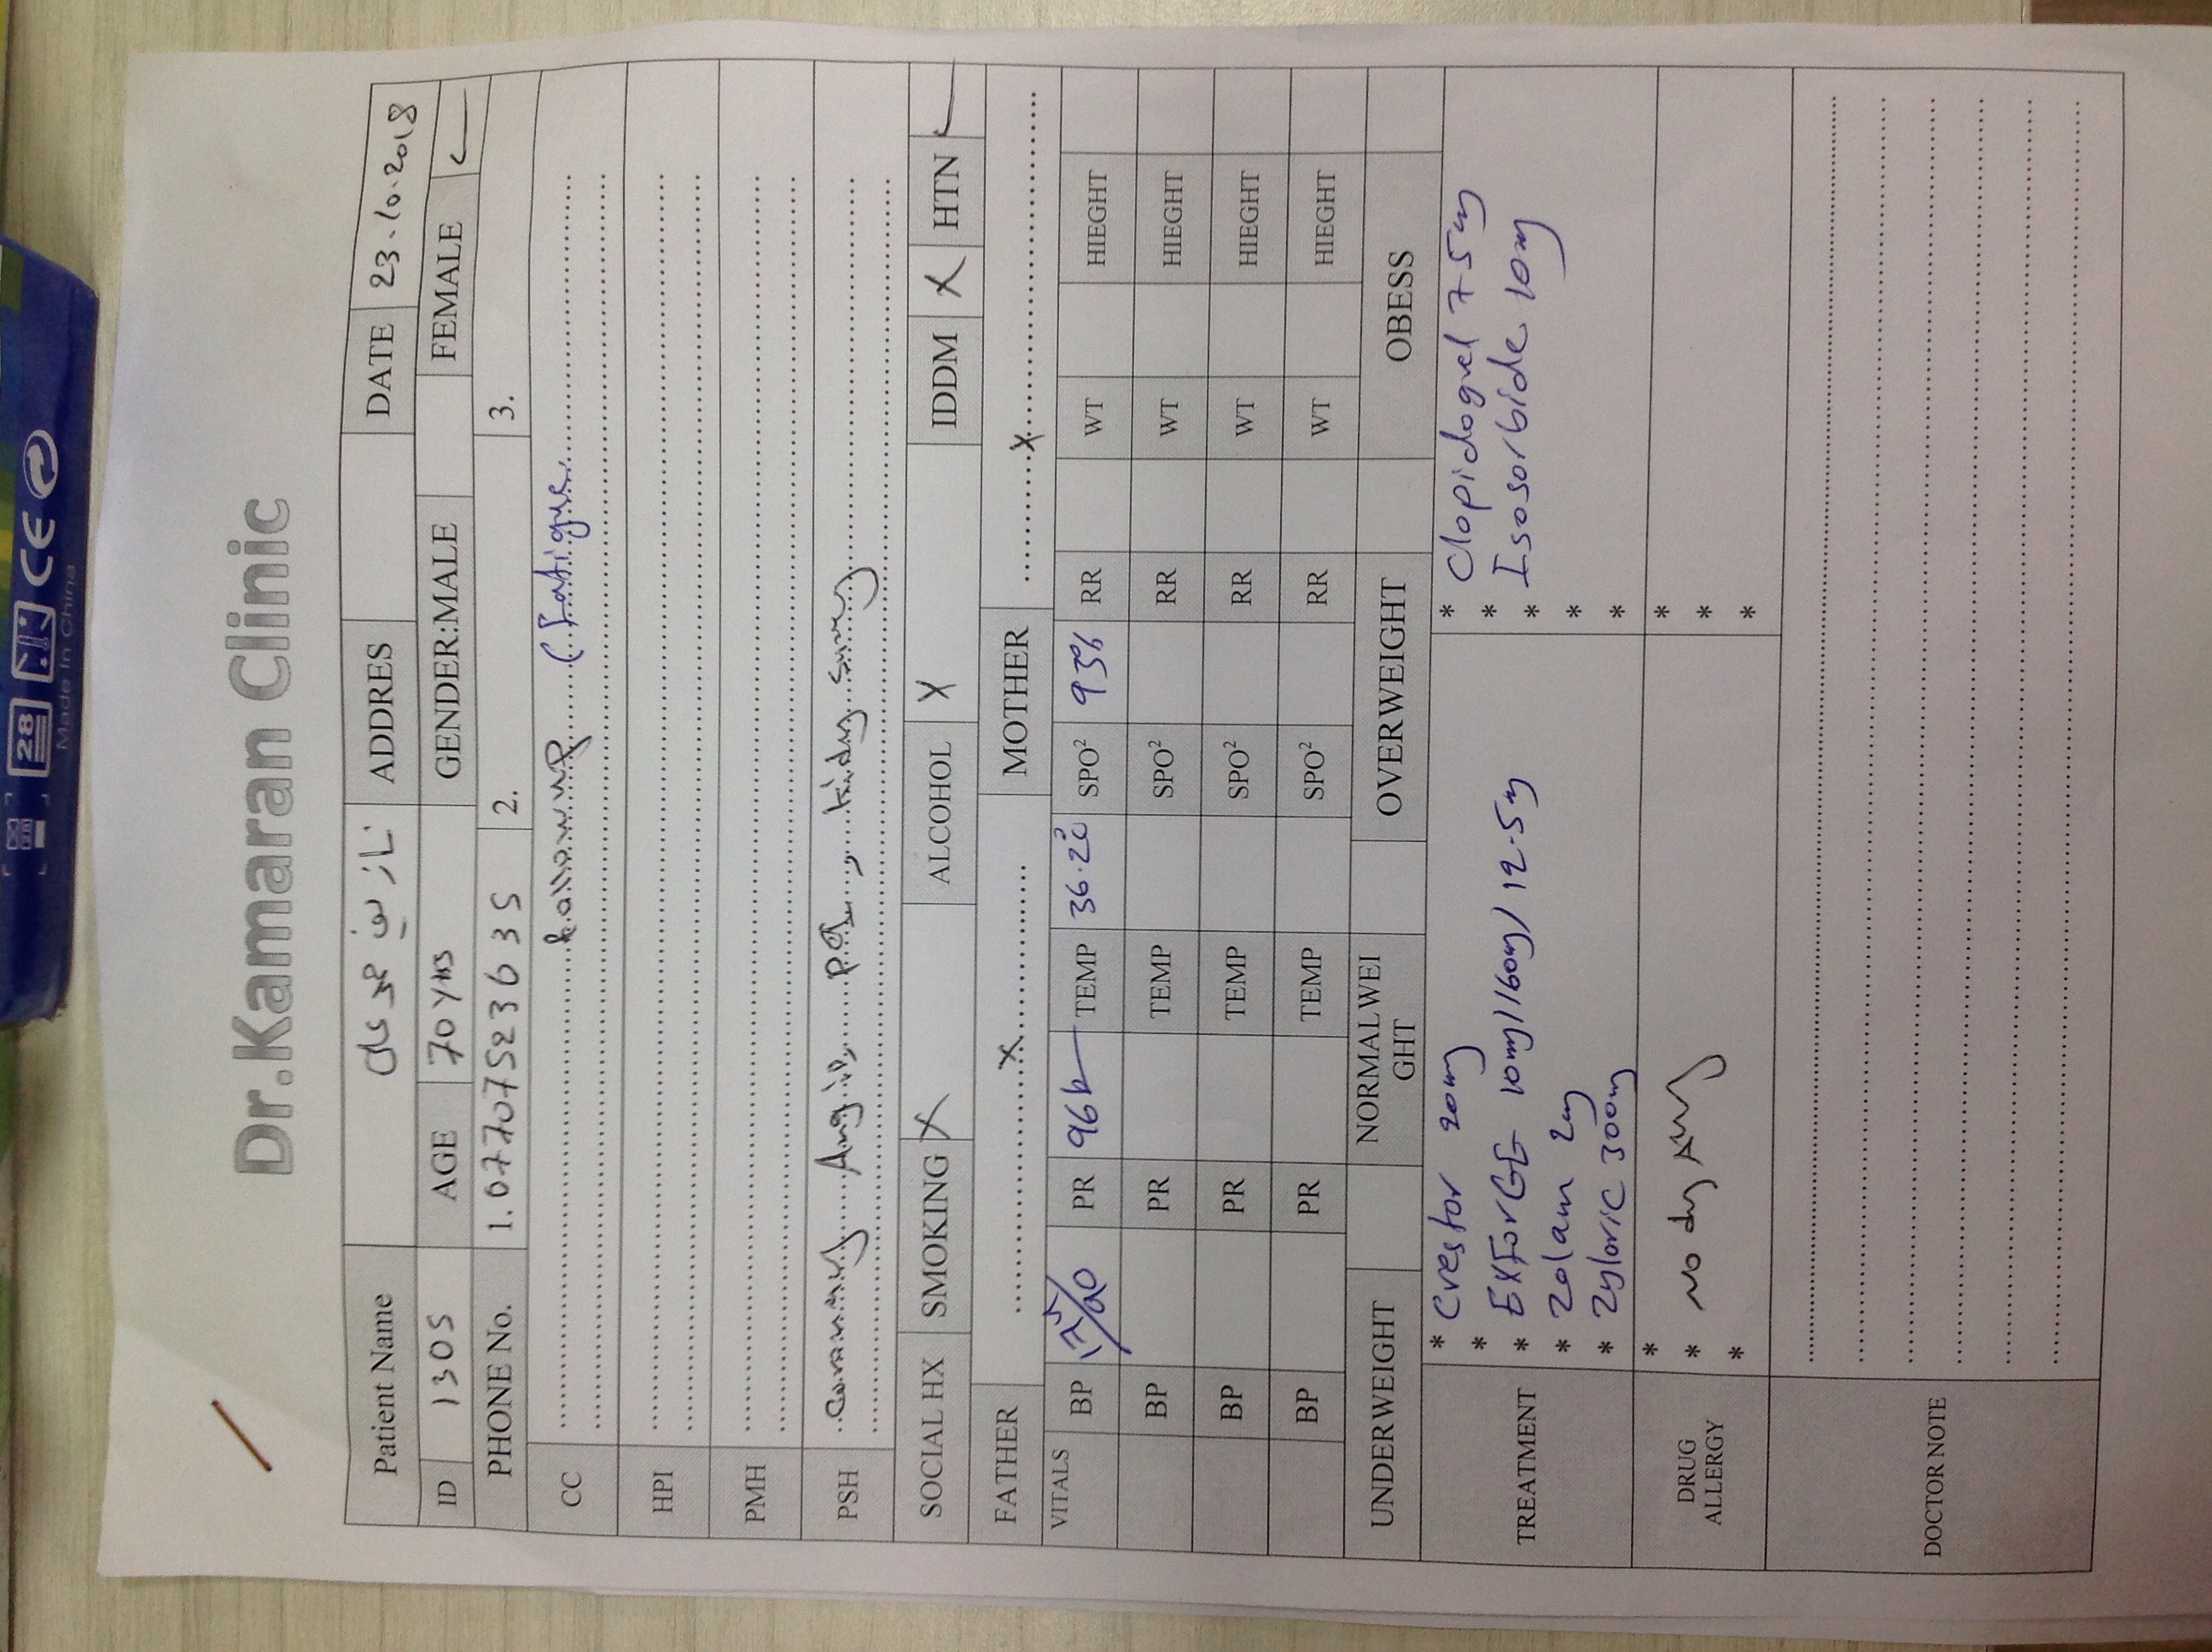 28 CE
Made in China
Dr.Kamaran Clinic
Patient Name ADDRES DATE 23.10.2018
ID 1305 AGE 70 yrs GENDER:MALE FEMALE ✓
PHONE No. 1. 07707523635 2. 3.
CC followup (Fatigue
HPI
PMH
PSH Coronary Angio, PCI, kidney
SOCIAL HX SMOKING X ALCOHOL X IDDM X HTN ✓
FATHER X MOTHER X
VITALS BP PR 96 TEMP 36.2c° SPO² 93% RR WT HIEGHT
BP PR TEMP SPO² RR WT HIEGHT
BP PR TEMP SPO² RR WT HIEGHT
BP PR TEMP SPO² RR WT HIEGHT
UNDERWEIGHT NORMALWEI
GHT OVERWEIGHT OBESS
TREATMENT
* Crestor 20mg
* EXForGE 10mg/160mg/12.5mg
* Zolam 2mg
* Zyloric 300mg
* Clopidogrel 75mg
* Isosorbide 10mg
*
*
*
DRUG
ALLERGY
*
* no
*
*
*
*
DOCTOR NOTE